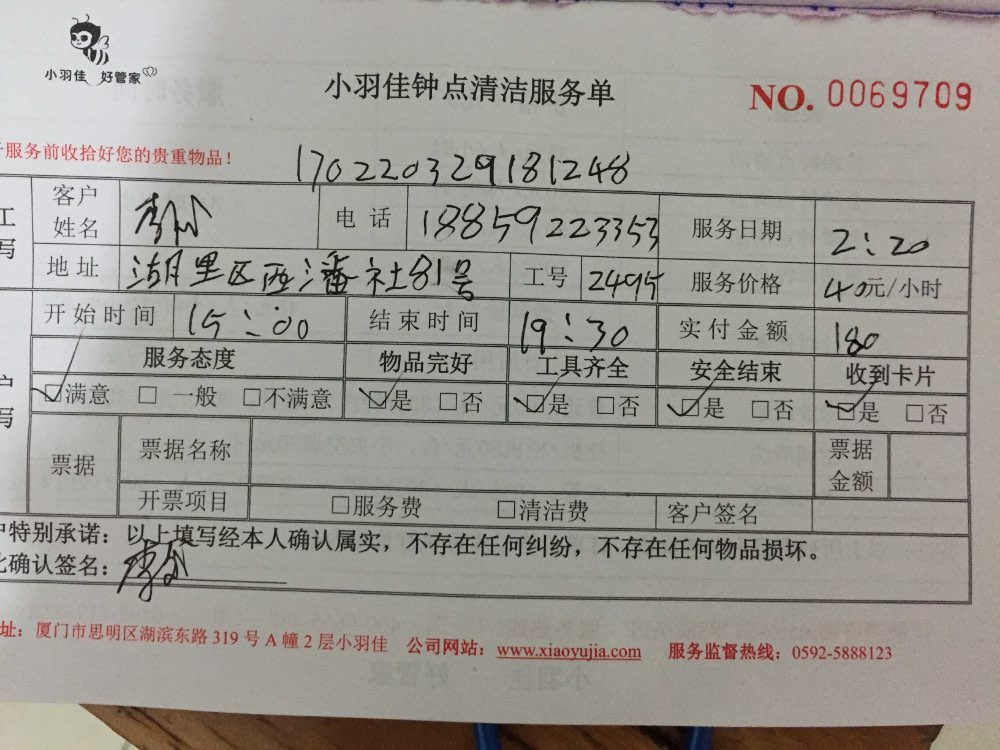 小羽佳 好管家
小羽佳钟点清洁服务单
NO. 0069709
服务前收拾好您的贵重物品!
170220329181248
工
写
客户姓名
电话 18859223353
服务日期 2:20
地址 湖里区西潘社81号
工号 2495
服务价格 40元/小时
开始时间 15:00
结束时间 19:30
实付金额 180
户
写
服务态度 物品完好 工具齐全 安全结束 收到卡片
☑满意 □一般 □不满意 ☑是 □否 ☑是 □否 ☑是 □否 ☑是 □否
票据
票据名称
票据金额
开票项目 □服务费 □清洁费 客户签名
户特别承诺:以上填写经本人确认属实,不存在任何纠纷,不存在任何物品损坏。
此确认签名:
址:厦门市思明区湖滨东路 319 号 A 幢 2 层小羽佳 公司网站:www.xiaoyujia.com 服务监督热线:0592-5888123